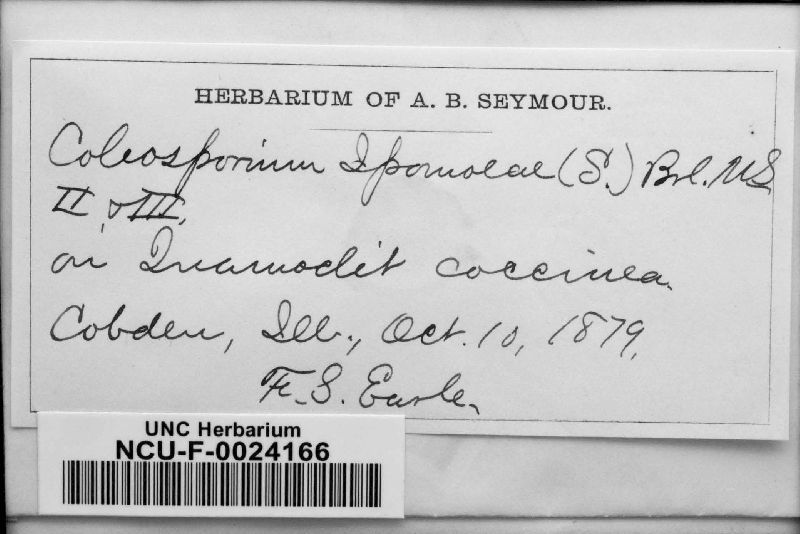 HERBARIUM OF A. B. SEYMOUR.
Coleosporium Ipomoeae (S.) Brl. US
II & III.
on Quamoclit coccinea.
Cobden, Ill., Oct. 10, 1879,
F. S. Earle.
UNC Herbarium
NCU-F-0024166